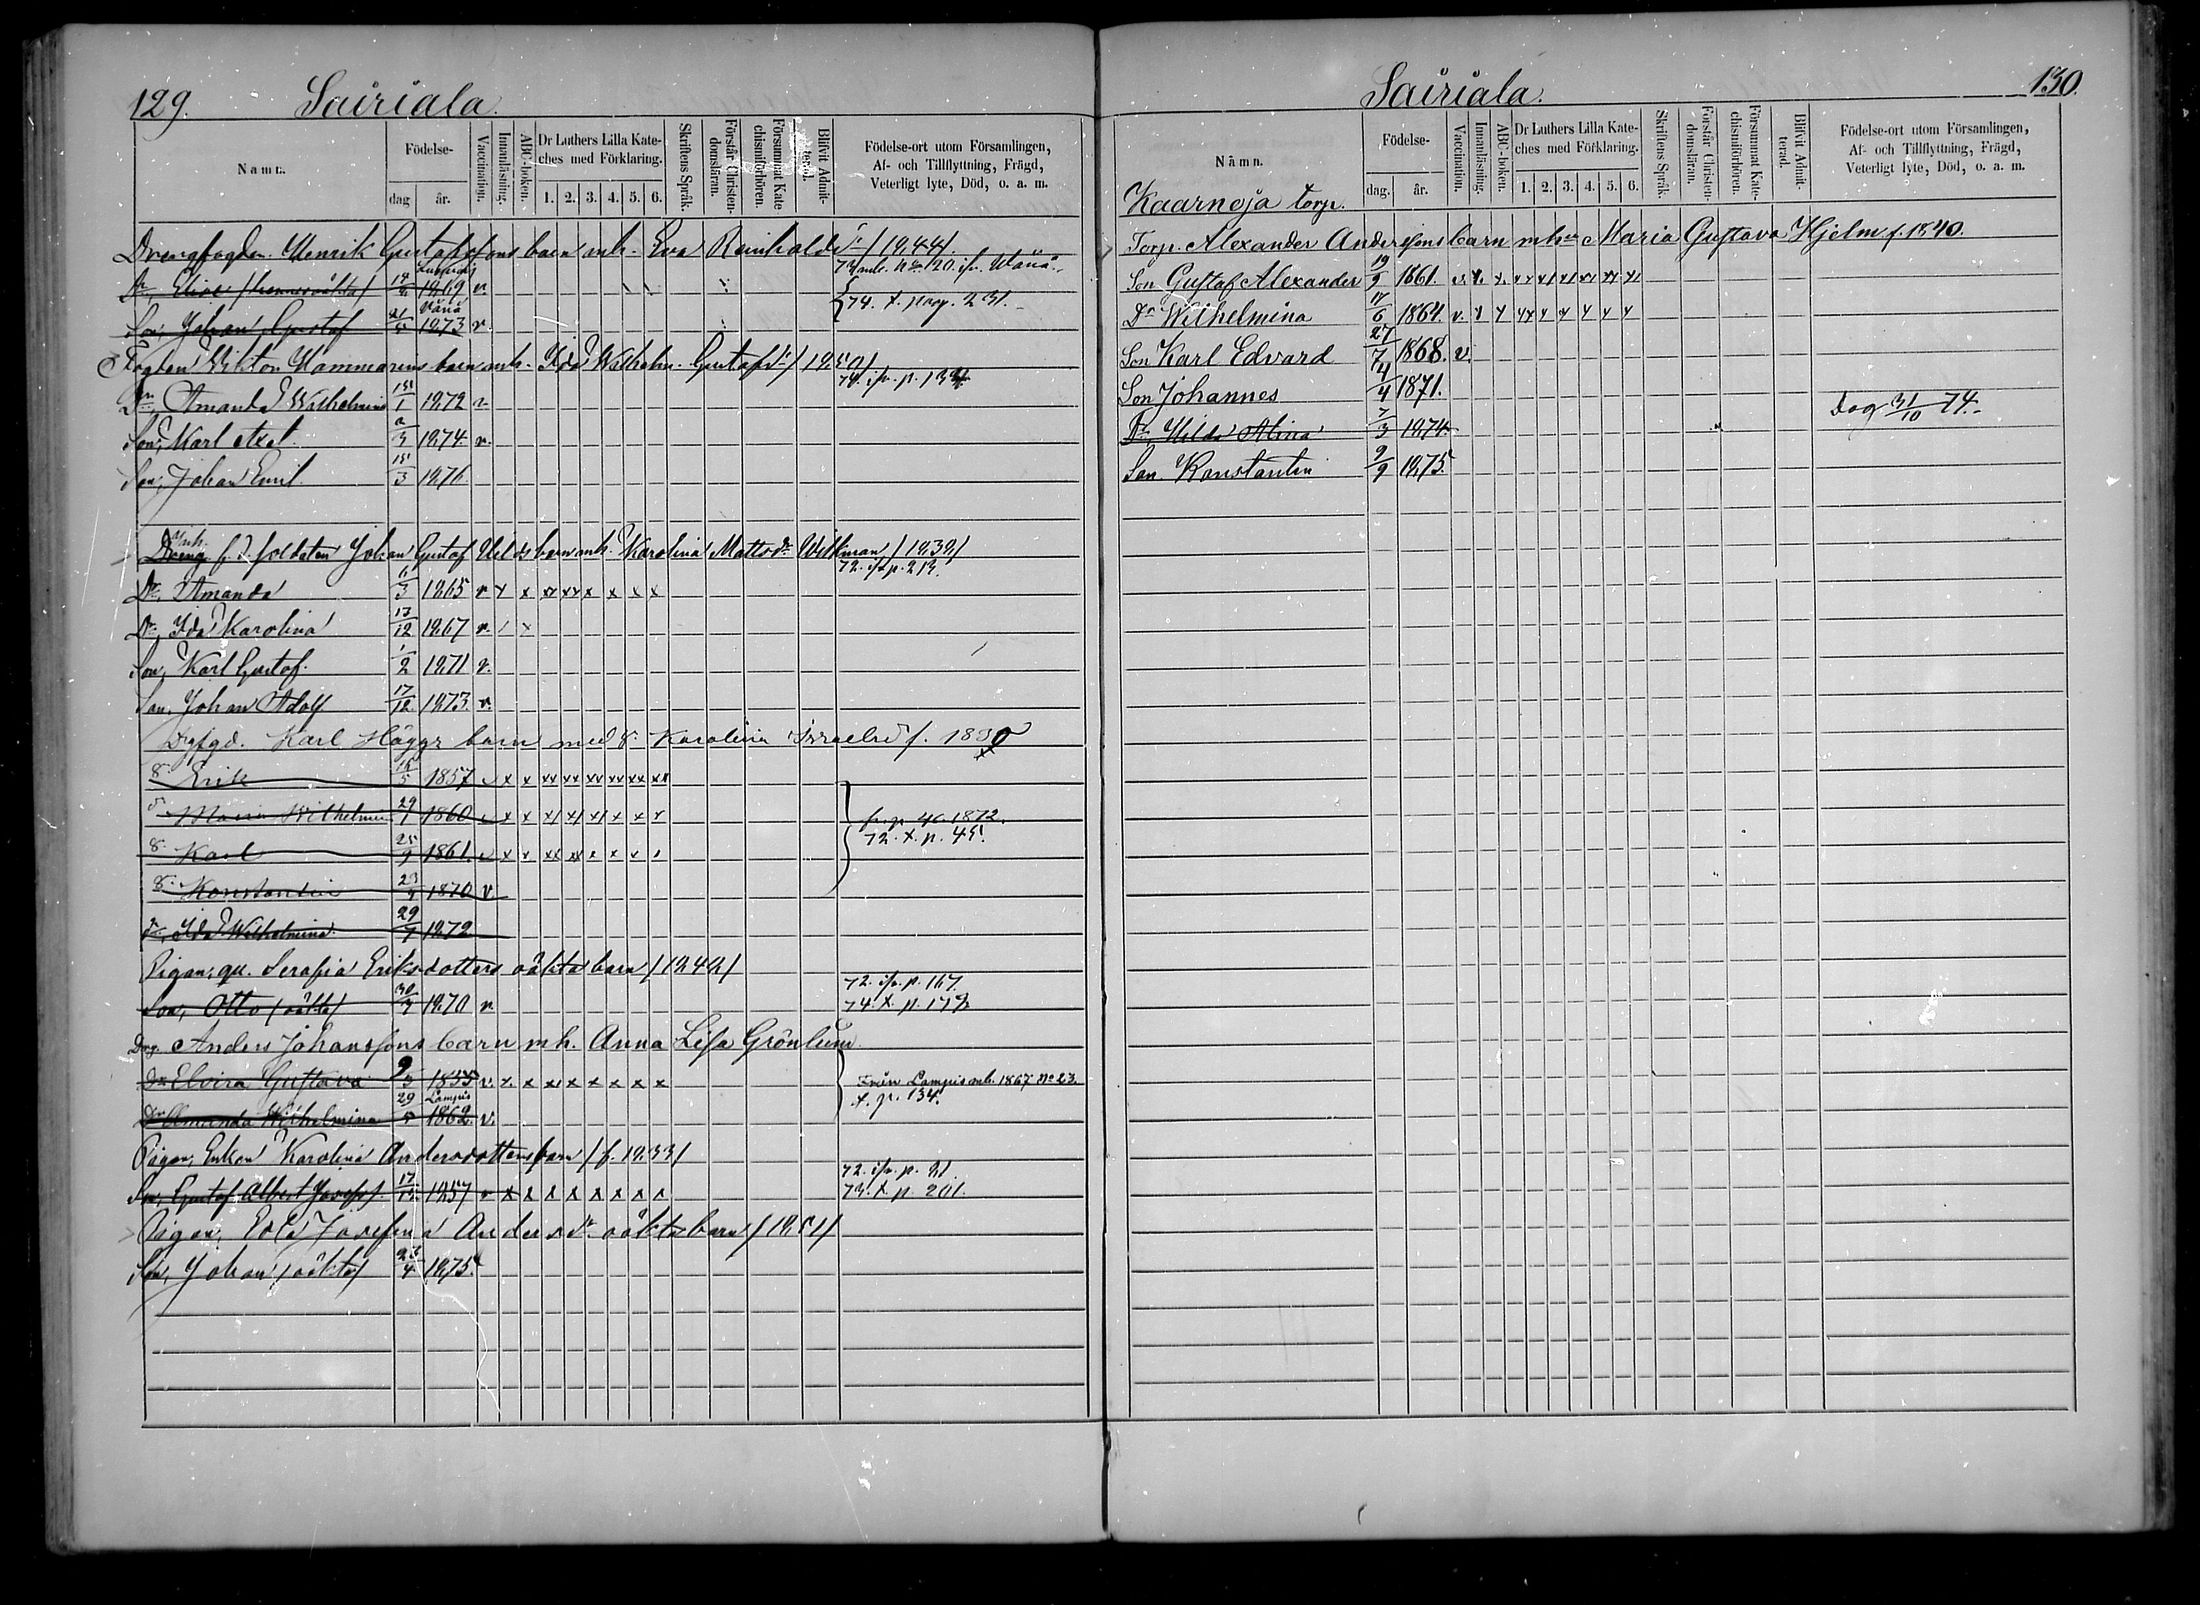 129. Sairiala.
Namn.
Födelse-
dag
år.
Vaccination.
Innanläsning.
ABC-boken.
Dr Luthers Lilla Kate-
ches med Förklaring.
1. 2. 3. 4. 5. 6.
Skriftens Språk.
Förstår Christen-
domsläran.
Försummat Kate
chismiförhören.
Blifvit Admit-
terad.
Födelse-ort utom Församlingen,
Af- och Tillflyttning, Frägd,
Veterligt lyte, Död, o. a. m.
Drengfogden Henrik Gustafssons barn mh. Eva Reinholds dr /1844/
1869 v. 73 mb. No 120. ifr. Wånå
Wånå
Son, Johan Gustaf 21/5 1873 v. 74. x. pag. 231.
Fogden Viktor Hammarens barn mh. Ida Wilhelm. Gustafsdr /1850/
Dr. Amanda Wilhelmina 15/1 1872 v. 74. ifr. p. 134
Son, Karl Axel 2/3 1874 v.
Son, Johan Emil 15/3 1876
Dreng f. d. soldaten Johan Gustaf barn mh. Karolina Mattsdr Willman /1839/
72. ifr. p. 213.
Dr. Amanda 1865 v x x xx xx x x x x
Dr. Ida Karolina 13/12 1867 v. / x
Son, Karl Gustaf 1/2 1871 v.
Son, Johan Adolf 17/12 1873 v.
Drgfgd. Karl Häggs barn med Karolina Israelsd f. 1830
Erik 1857 v x x xx xx xx xx xx xx
Maria Wilhelmina 29/1 1860 v x x x/ x/ x/ x x x fr. p. 46 1872.
72. x. p. 45.
Karl 25/9 1861 v x x xx xx x x x x
Konstantin 23/9 1870 v.
dr. Ida Wilhelmina 29/7 1872
Pigan, qv. Serafia Eriksdotters oäkta barn /1842/
72. ifr. p. 167.
Son, Otto (oäkta) 30/3 1870 v. 74. x. p. 172
Drg. Anders Johanssons barn mh. Anna Lisa Grönlund
Dr Elvira Gustava 9/3 1855 v. x. x xx x x x x x Från Lampis mb. 1867 No 23.
x. p. 134.
Lampis
Dr Amanda Wilhelmina 29/5 1862. v.
Pigan, Enkan Karolina Andersdotters barn /f. 1833/
72. ifr. p. 21
Son, Gustaf Albert Josefs. 17/12 1857 v x x x x x x x x 73. x p. 201.
Pigan, Eva Josefina Andersdr oäkta barn /1851/
Son, Johan (oäkta) 23/4 1875.
Sairiala. 130.
Namn.
Födelse-
dag.
år.
Vaccination.
Innanläsning.
ABC-boken.
Dr Luthers Lilla Kate-
ches med Förklaring.
1. 2. 3. 4. 5. 6.
Skriftens Språk.
Förstår Christen-
domsläran.
Försummat Kate-
chismiförhören.
Blifvit Admit-
terad.
Födelse-ort utom Församlingen,
Af- och Tillflyttning, Frägd,
Veterligt lyte, Död, o. a. m.
Kaarnoja torp.
Torp. Alexander Anderssons barn mhu Maria Gustava Hjelm f. 1840.
Son Gustaf Alexander 19/9 1861. v. x. x. xx x/ x/ x/ x/ x/
Dr Wilhelmina 17/6 1864. v. x x xx x x x x x
Son Karl Edvard 27/7 1868. v.
Son Johannes 4/4 1871.
Dr. Hilda Alina 7/3 1874. Dog 31/10 74.
Son Konstantin 9/9 1875.